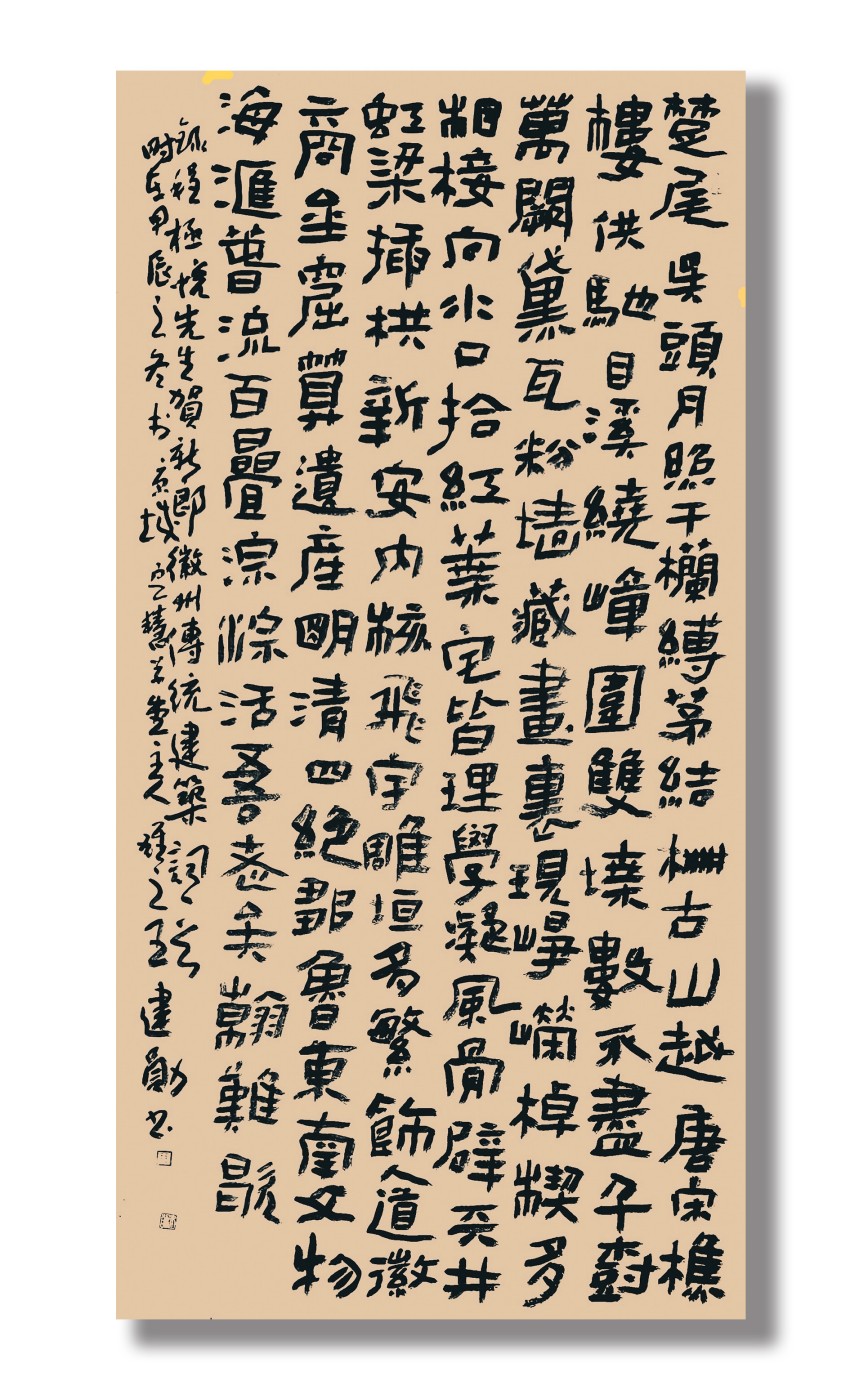 楚尾吳頭月照干欄縛茅結構古山越唐宋樵
樓供馳目溪繞嶂圍雙堞數不盡千
萬闕黛瓦粉墻藏畫裏現崢嶸棹楔多
相接向水口拾紅葉宅皆理學凝風骨辟天井
虹梁插栱新安內核飛宇雕垣多繁飾人道徽
商窟算遺產明清四絕鄒魯東南文物
海滙普流百疊淙淙活吾老矣翰難歇
錄程極悅先生賀新郎徽州傳統建築詞
時在甲辰之冬於京城主人建勛書